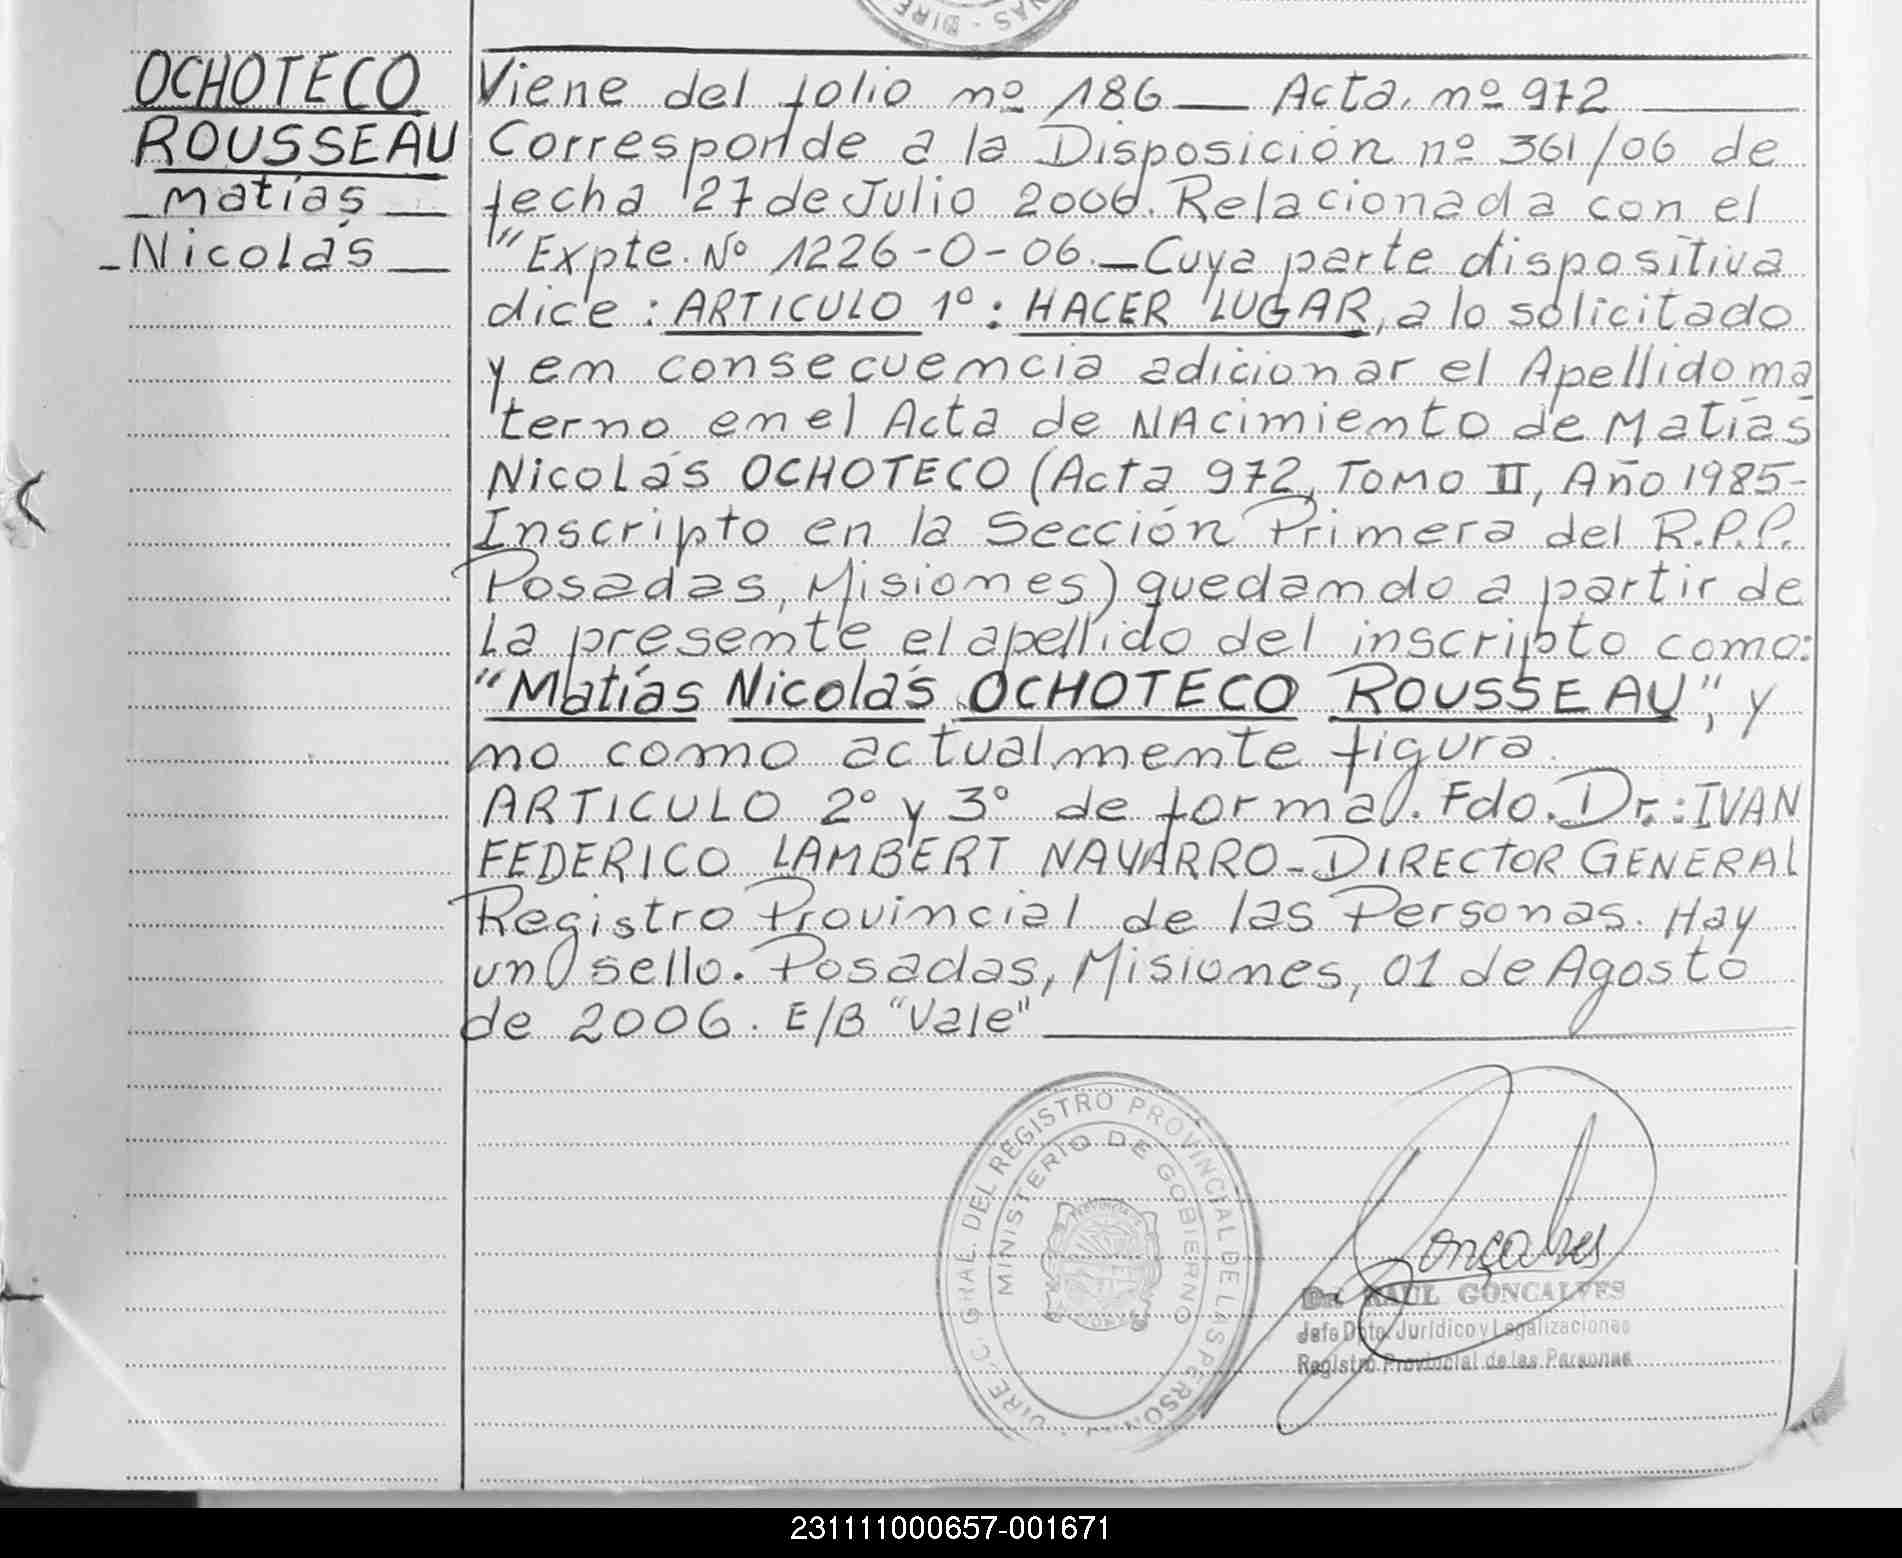 OCHOTECO
ROUSSEAU
Matías
Nicolás
Viene del folio nº 186 — Acta nº 972
Corresponde a la Disposición nº 361/06 de
fecha 27 de Julio 2006. Relacionada con el
"Expte. Nº 1226-O-06.— Cuya parte dispositiva
dice: ARTICULO 1º: HACER LUGAR, a lo solicitado
y en consecuencia adicionar el Apellido ma
terno en el Acta de NAcimiento de Matías
Nicolás OCHOTECO (Acta 972, Tomo II, Año 1985-
Inscripto en la Sección Primera del R.P.P.
Posadas, Misiones) quedando a partir de
La presente el apellido del inscripto como:
"Matías Nicolás OCHOTECO ROUSSEAU", y
no como actualmente figura.
ARTICULO 2º y 3º de forma. Fdo. Dr.: IVAN
FEDERICO LAMBERT NAVARRO-DIRECTOR GENERAL
Registro Provincial de las Personas. Hay
un sello. Posadas, Misiones, 01 de Agosto
de 2006. E/B "Vale"
DIRECC. GRAL. DEL REGISTRO PROVINCIAL DE LAS PERSONAS
MINISTERIO DE GOBIERNO
Gonçalves
Dr. RAUL GONCALVES
Jefe Dpto. Jurídico y Legalizaciones
Registro Provincial de las Personas
231111000657-001671